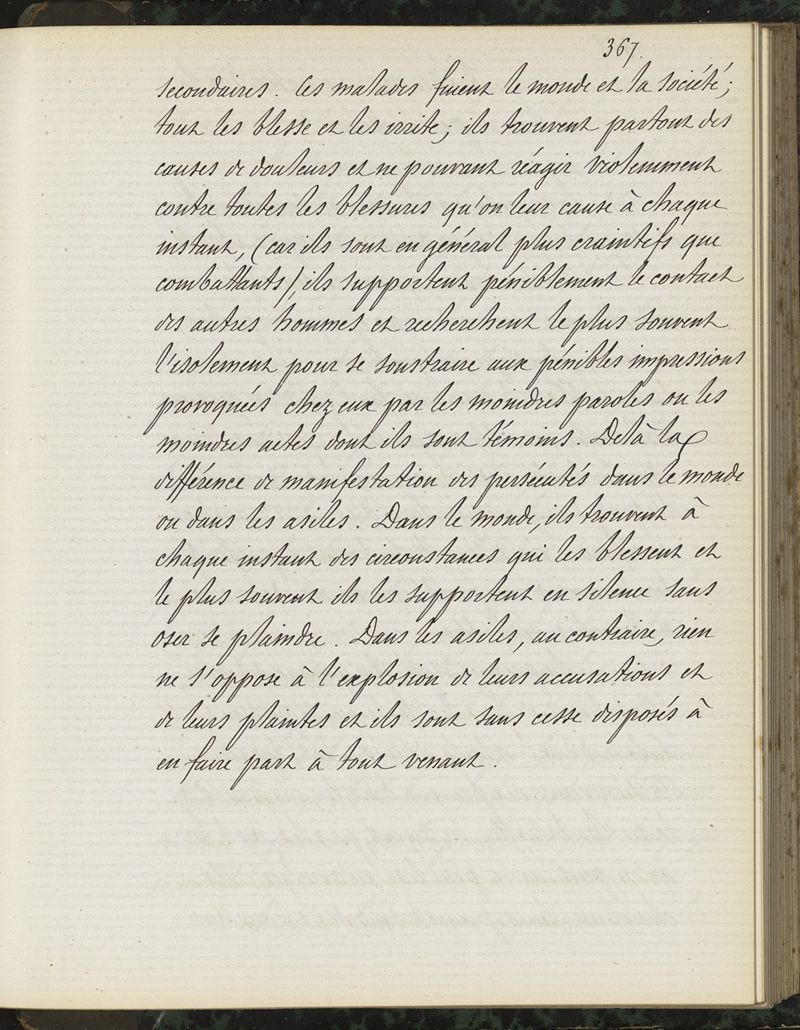 367.
secondaires. Ces malades fuient le monde et la société;
tout les blesse et les irrite; ils trouvent partout des
causes de douleurs et ne pouvant réagir violemment
contre toutes les blessures qu'on leur cause à chaque
instant, (car ils sont en général plus craintifs que
combattants), ils supportent péniblement le contact
des autres hommes et recherchent le plus souvent
l'isolement pour se soustraire aux pénibles impressions
provoquées chez eux par les moindres paroles ou les
moindres actes dont ils sont témoins. De là la
différence de manifestation des persécutés dans le monde
ou dans les asiles. Dans le monde, ils trouvent à
chaque instant des circonstances qui les blessent et
le plus souvent ils les supportent en silence sans
oser se plaindre. Dans les asiles, au contraire, rien
ne s'oppose à l'explosion de leurs accusations et
de leurs plaintes et ils sont sans cesse disposés à
en faire part à tout venant.